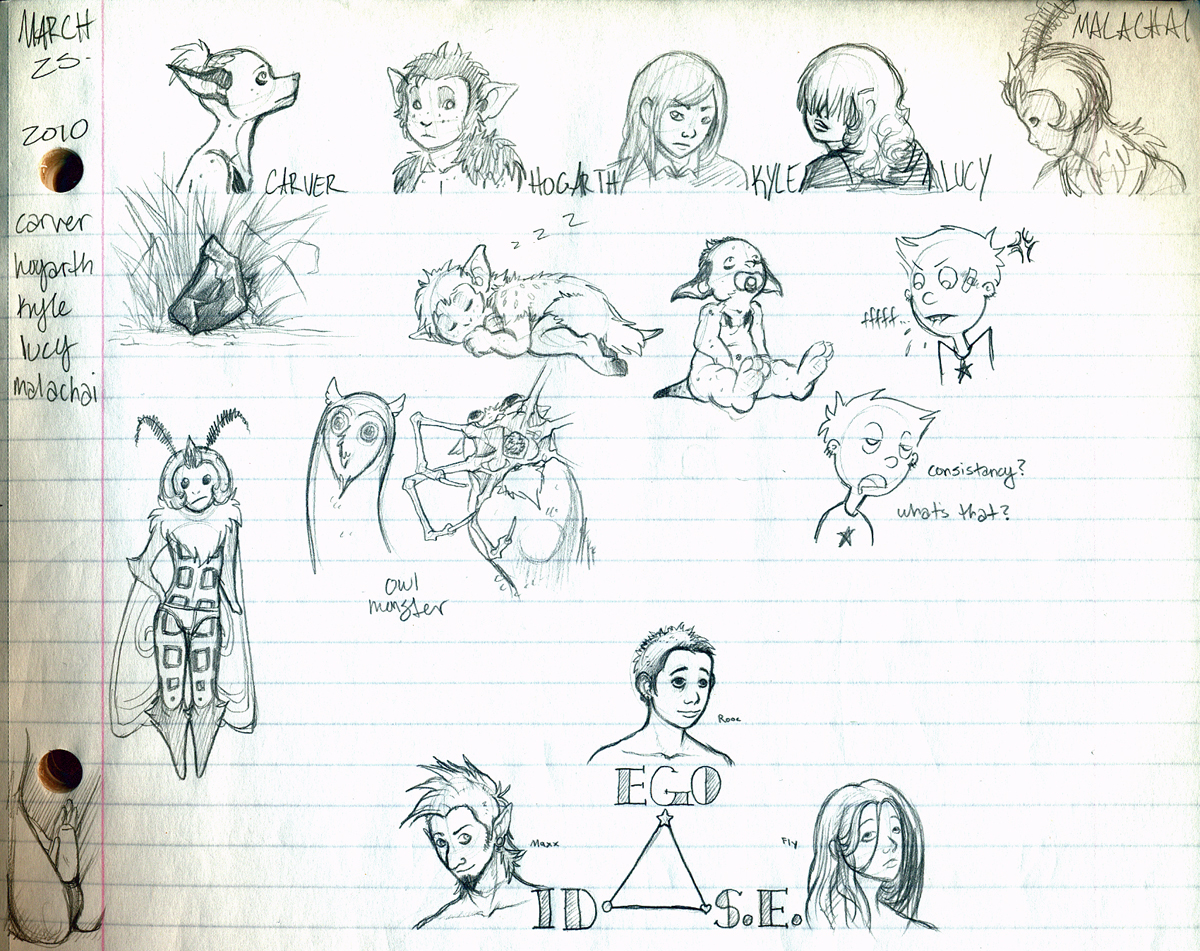 MARCH
25-
2010
carver
hogarth
kyle
lucy
malachai
CARVER
HOGARTH
KYLE
LUCY
MALACHAI
z z z
fffff...
consistancy?
what's that?
owl
monster
Rooc
EGO
Maxx
Fly
ID
S.E.